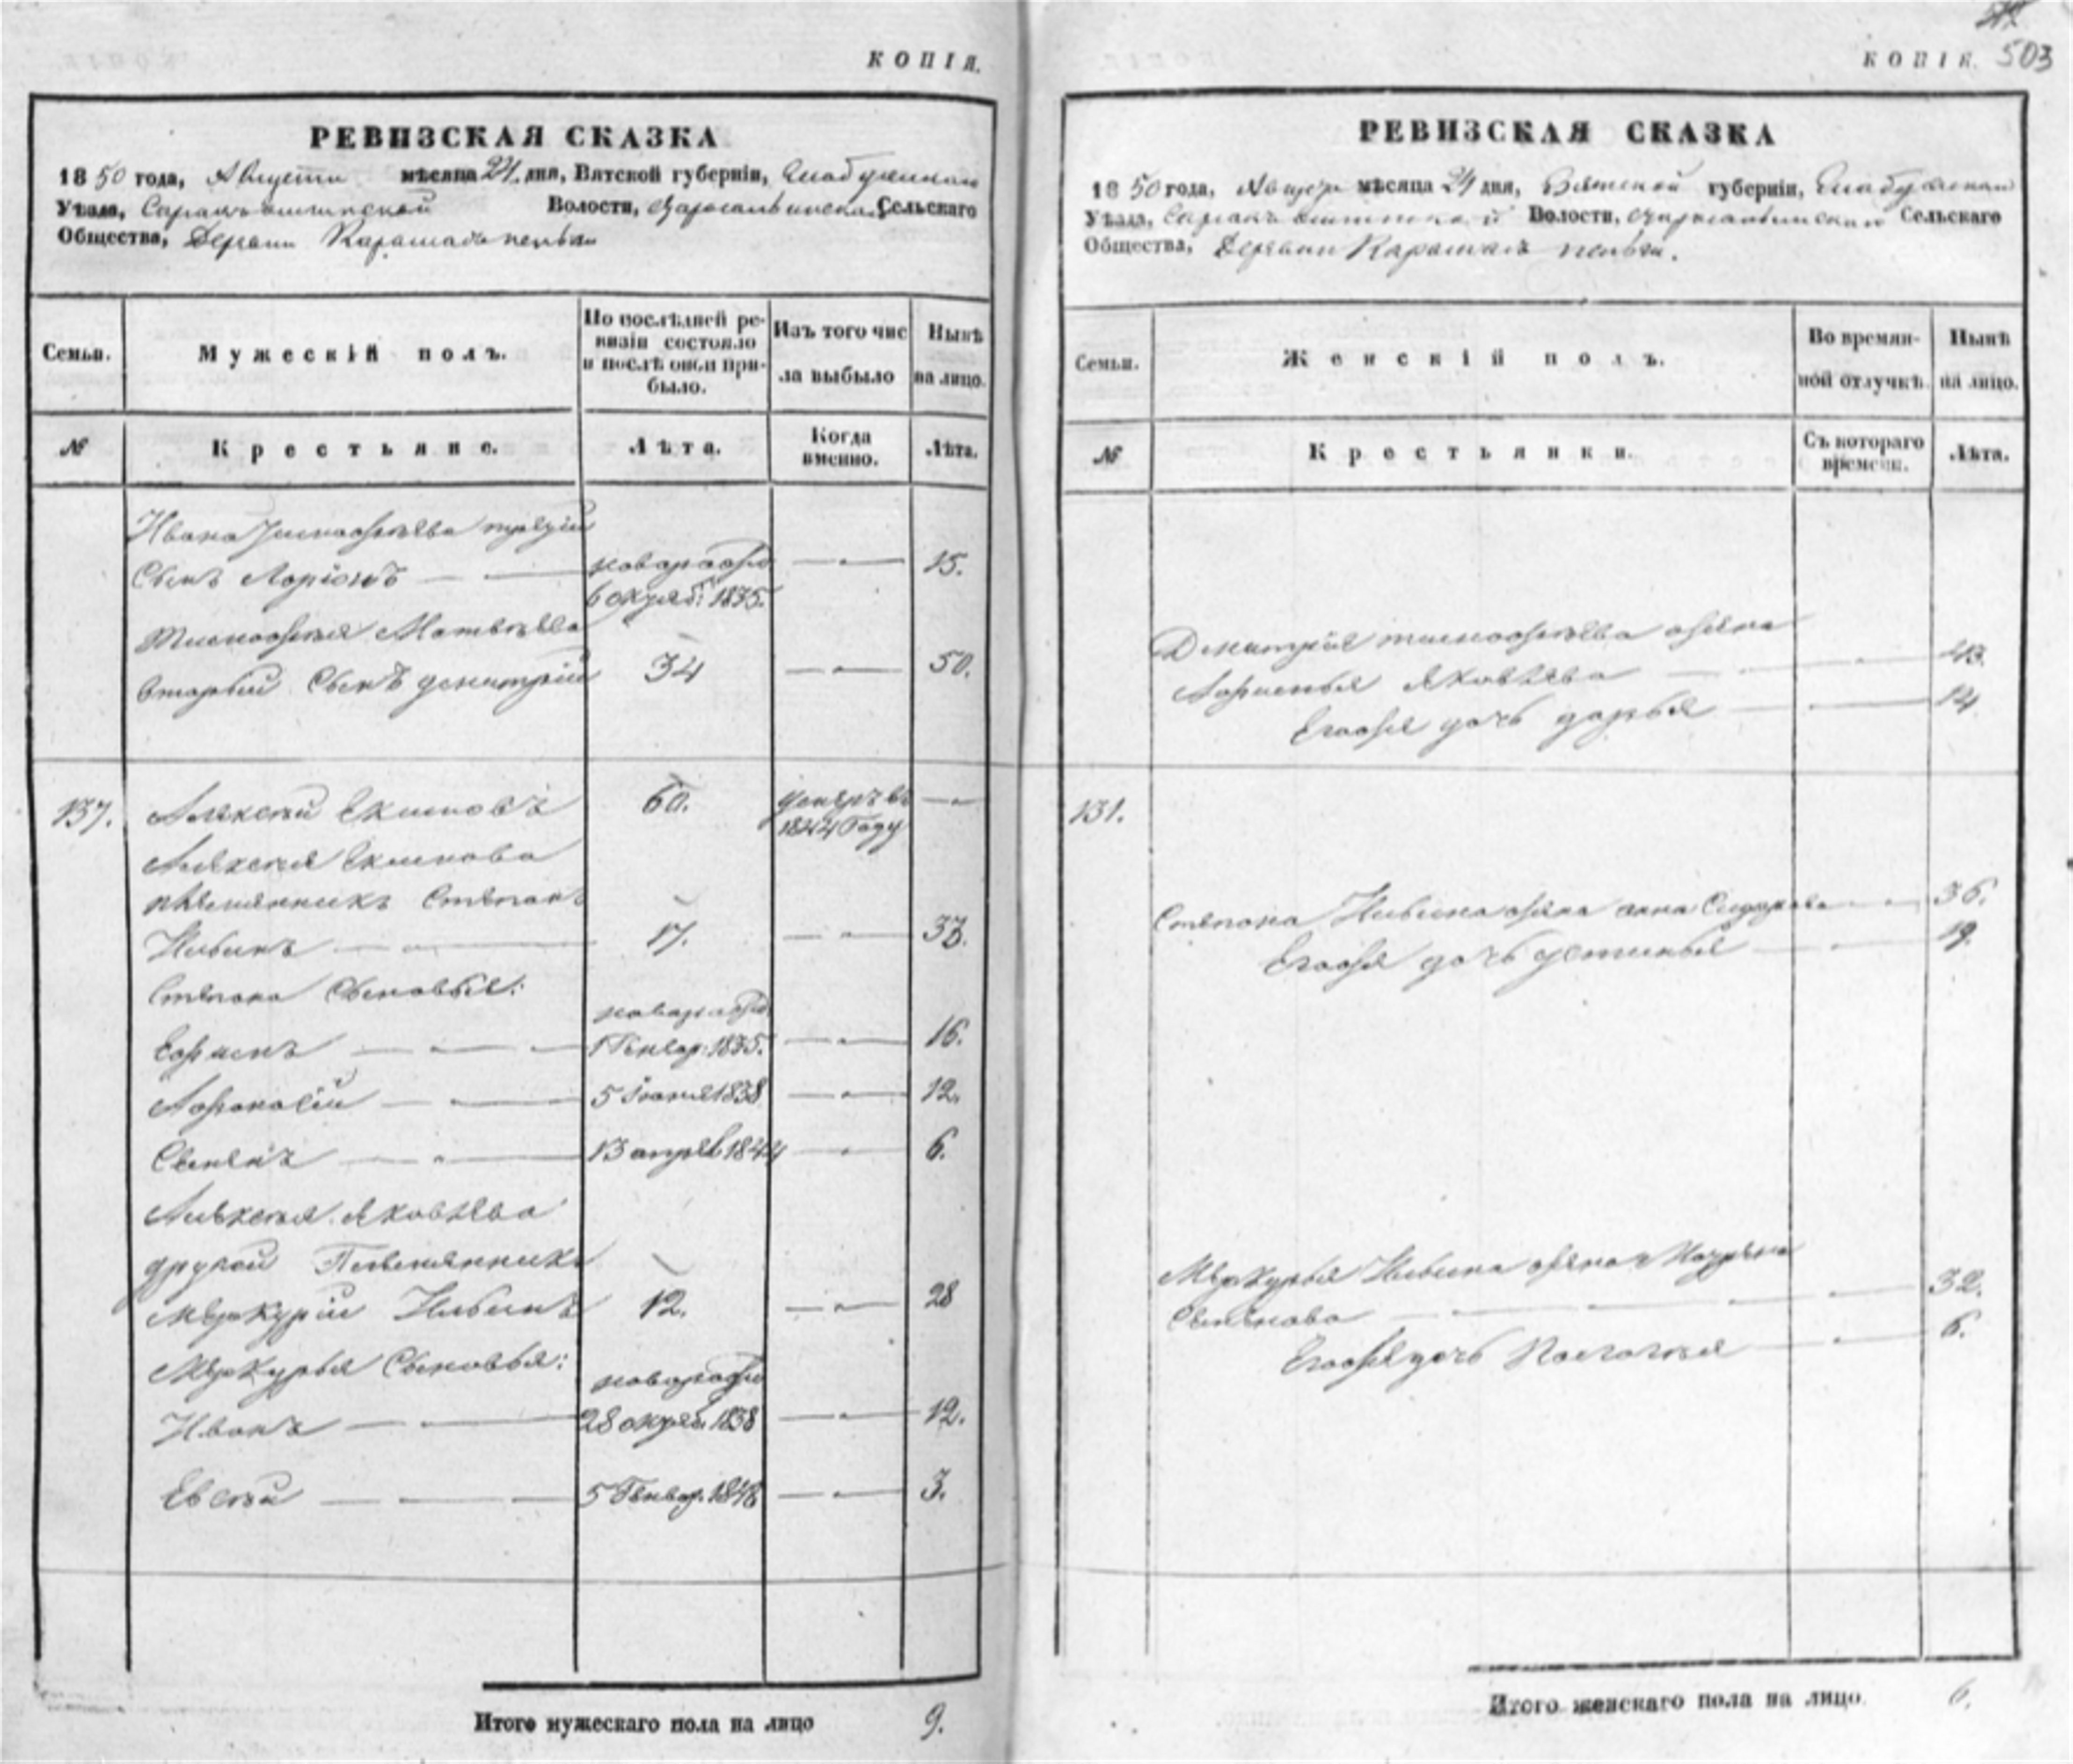 КОПІЯ.
РЕВИЗСКАЯ СКАЗКА
1850 года, Августа мѣсяца 24 дня, Вятской губерніи,
Уѣзда, Волости, Сельскаго
Общества, Деревни
Семьи. Мужескій полъ. По послѣдней ре-визіи состояло и послѣ оной при-было. Изъ того чис ла выбыло Нынѣ на лицо.
№ Крестьяне. Лѣта. Когда именно. Лѣта.
Ивана Тимофѣева третій
Сынъ Ларіонъ новорожд 15.
6 октяб: 1835.
Тимофѣя Матвѣева
вторый Сынъ Дмитрій 34 50.
137. Алексѣй Екимовъ 60. умеръ въ
1844 Году
Алексѣя Екимова
племянникъ Степанъ
Ильинъ 17. 33.
Степана Сыновья:
новорожд
Ефимъ 1 Генвар. 1835. 16.
Афонасій 5 Іюня 1838 12.
Семенъ 13 апрѣл 1844 6.
Алексѣя Яковлева
другой Племянникъ
Меркурій Ильинъ 12. 28
Меркурья Сыновья:
новорожд
Иванъ 28 октяб. 1838 12.
Евсѣй 5 Генвар. 1848 3.
Итого мужескаго пола на лицо 9.
КОПІЯ. 503
РЕВИЗСКАЯ СКАЗКА
1850 года, мѣсяца 24 дня, Вятской губерніи,
Уѣзда, Волости, Сельскаго
Общества, Деревни
Семьи. Женскій полъ. Во времян-ной отлучкѣ. Нынѣ на лицо.
№ Крестьянки. Съ котораго времени. Лѣта.
Дмитрія Тимофѣева жена
Афимья Яковлева 43.
Егожа дочь Дарья 14
131.
Степана Ильина жена Анна Сидорова 36.
Егожа дочь Устинья 19.
Меркурья Ильина жена
Семенова 32.
Егожа дочь 6.
Итого женскаго пола на лицо 6.